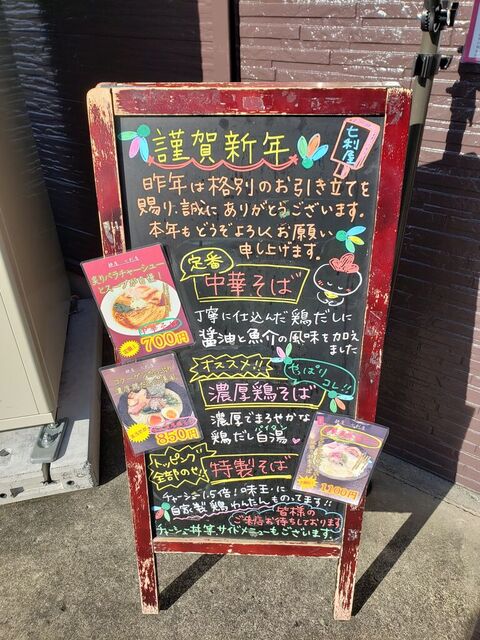 謹賀新年
七利屋
昨年は格別のお引き立てを
賜り、誠にありがとうございます。
本年もどうぞよろしくお願い
申し上げます。
定番
中華そば
丁寧に仕込んだ鶏だしに
醤油と魚介の風味を加え
ました
炙りバラチャーシュー
とスープが自慢!
700円
オススメ!!
やっぱり
コレ!!
濃厚鶏そば
濃厚でまろやかな
鶏だし白湯
パイタン
850円
トッピング
全部のせ!!
特製そば
1,100円
チャーシュー1.5倍!味玉・に
自家製鶏わんたんものってます!!
皆様の
ご来店お待ちしております
チャーシュー丼等サイドメニューもございます。